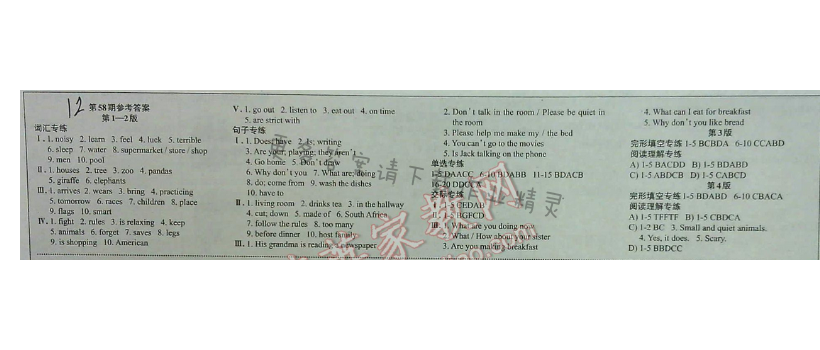 12
第58期参考答案
第1—2版
词汇专练
Ⅰ. 1. noisy 2. learn 3. feel 4. luck 5. terrible
6. sleep 7. water 8. supermarket / store / shop
9. men 10. pool
Ⅱ. 1. houses 2. tree 3. zoo 4. pandas
5. giraffe 6. elephants
Ⅲ. 1. arrives 2. wears 3. bring 4. practicing
5. tomorrow 6. races 7. children 8. place
9. flags 10. smart
Ⅳ. 1. fight 2. rules 3. is relaxing 4. keep
5. animals 6. forget 7. saves 8. legs
9. is shopping 10. American
Ⅴ. 1. go out 2. listen to 3. eat out 4. on time
5. are strict with
句子专练
Ⅰ. 1. Does, have 2. Is, writing
3. Are your, playing; they aren't
4. Go home 5. Don't draw
6. Why don't you 7. What are, doing
8. do; come from 9. wash the dishes
10. have to
Ⅱ. 1. living room 2. drinks tea 3. in the hallway
4. cut; down 5. made of 6. South Africa
7. follow the rules 8. too many
9. before dinner 10. host family
Ⅲ. 1. His grandma is reading a newspaper.
2. Don't talk in the room / Please be quiet in
the room
3. Please help me make my / the bed
4. You can't go to the movies
5. Is Jack talking on the phone
单选专练
1-5 DAACC 6-10 BDABB 11-15 BDACB
16-20 DDCCA
交际专练
1-5 CEDAB
1-5 BGFCD
Ⅲ. 1. What are you doing now
2. What / How about your sister
3. Are you making breakfast
4. What can I eat for breakfast
5. Why don't you like bread
第3版
完形填空专练 1-5 BCBDA 6-10 CCABD
阅读理解专练
A) 1-5 BACDD B) 1-5 BDABD
C) 1-5 ABDCB D) 1-5 CABCD
第4版
完形填空专练 1-5 BDABD 6-10 CBACA
阅读理解专练
A) 1-5 TFFTF B) 1-5 CBDCA
C) 1-2 BC 3. Small and quiet animals.
4. Yes, it does. 5. Scary.
D) 1-5 BBDCC